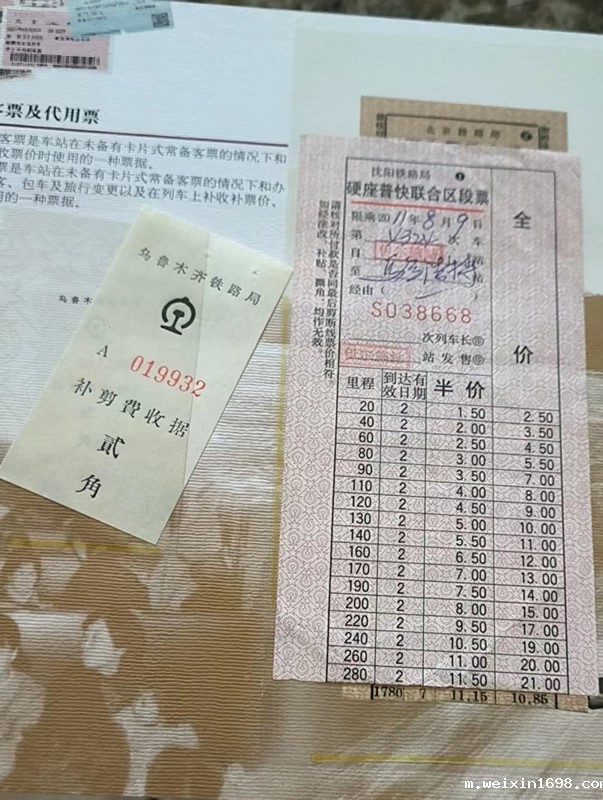 客票及代用票
客票是车站在未备有卡片式常备客票的情况下和
收票价时使用的一种票据。
票是车站在未备有卡片式常备客票的情况下和办
客、包车及旅行变更以及在列车上补收补票价、
用的一种票据。
乌鲁木
乌鲁木齐铁路局
A 019932
补剪費收据
贰
角
北京铁路局
沈阳铁路局
硬座普快联合区段票
限乘2011年8月9日
第 次车
自 站
至 站
经由( )
S038668
次列车长㊞
站发售㊞
全
价
请核对所付款是否同最后剪断线票价相符。
如经涂改、补贴、撕角,均作无效。
里程 到达有效日期 半价
20 2 1.50 2.50
40 2 2.00 3.50
60 2 2.50 4.50
80 2 3.00 5.50
90 2 3.50 7.00
110 2 4.00 8.00
120 2 4.50 9.00
130 2 5.00 10.00
140 2 5.50 11.00
160 2 6.50 12.00
170 2 7.00 13.00
190 2 7.50 14.00
200 2 8.00 15.00
220 2 9.50 17.00
240 2 10.50 19.00
260 2 11.00 20.00
280 2 11.50 21.00
1780 7 11.15 10.85
m.weixin1698.com